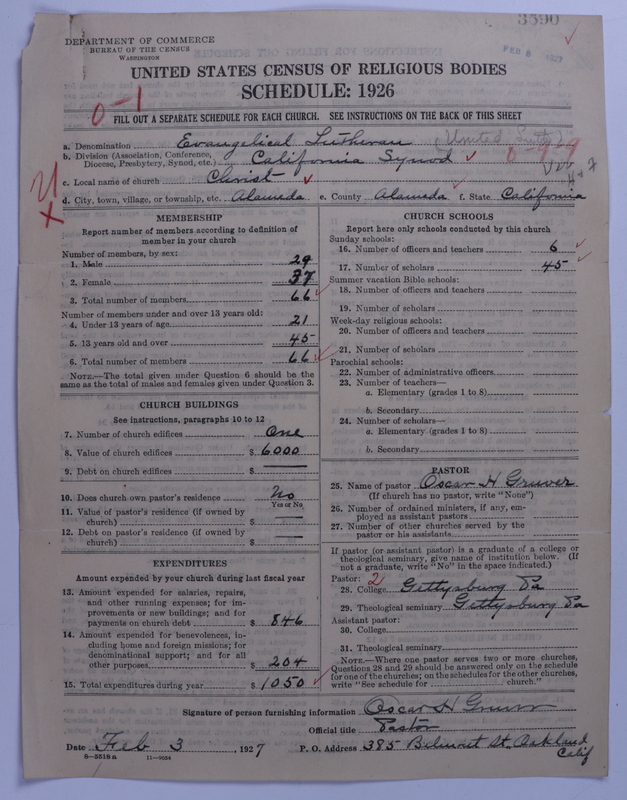 3590
DEPARTMENT OF COMMERCE
BUREAU OF THE CENSUS
WASHINGTON
FEB 8 1927
UNITED STATES CENSUS OF RELIGIOUS BODIES
SCHEDULE: 1926
0-1
FILL OUT A SEPARATE SCHEDULE FOR EACH CHURCH. SEE INSTRUCTIONS ON THE BACK OF THIS SHEET
a. Denomination Evangelical Lutheran (United
b. Division (Association, Conference, Diocese, Presbytery, Synod, etc.) California Synod
c. Local name of church Christ
d. City, town, village, or township, etc. Alameda e. County Alameda f. State California
MEMBERSHIP
Report number of members according to definition of member in your church
Number of members, by sex:
1. Male 29
2. Female 37
3. Total number of members 66
Number of members under and over 13 years old:
4. Under 13 years of age 21
5. 13 years old and over 45
6. Total number of members 66
NOTE.—The total given under Question 6 should be the same as the total of males and females given under Question 3.
CHURCH BUILDINGS
See instructions, paragraphs 10 to 12
7. Number of church edifices One
8. Value of church edifices $ 6000
9. Debt on church edifices $
10. Does church own pastor's residence No
Yes or No
11. Value of pastor's residence (if owned by church) $
12. Debt on pastor's residence (if owned by church) $
EXPENDITURES
Amount expended by your church during last fiscal year
13. Amount expended for salaries, repairs, and other running expenses; for improvements or new buildings; and for payments on church debt $ 846
14. Amount expended for benevolences, including home and foreign missions; for denominational support; and for all other purposes $ 204
15. Total expenditures during year $ 1050
CHURCH SCHOOLS
Report here only schools conducted by this church
Sunday schools:
16. Number of officers and teachers 6
17. Number of scholars 45
Summer vacation Bible schools:
18. Number of officers and teachers
19. Number of scholars
Week-day religious schools:
20. Number of officers and teachers
21. Number of scholars
Parochial schools:
22. Number of administrative officers
23. Number of teachers—
a. Elementary (grades 1 to 8)
b. Secondary
24. Number of scholars—
a. Elementary (grades 1 to 8)
b. Secondary
PASTOR
25. Name of pastor Oscar H Gruver
(If church has no pastor, write "None")
26. Number of ordained ministers, if any, employed as assistant pastors
27. Number of other churches served by the pastor or his assistants
If pastor (or assistant pastor) is a graduate of a college or theological seminary, give name of institution below. (If not a graduate, write "No" in the space indicated.)
Pastor: 2
28. College Gettysburg Pa
29. Theological seminary Gettysburg Pa
Assistant pastor:
30. College
31. Theological seminary
NOTE.—Where one pastor serves two or more churches, Questions 28 and 29 should be answered only on the schedule for one of the churches; on the schedules for the other churches, write "See schedule for church."
Signature of person furnishing information Oscar H Gruver
Official title Pastor
Date Feb 3, 1927 P. O. Address 385 Belmont St. Oakland Calif
8-5518a 11-9054